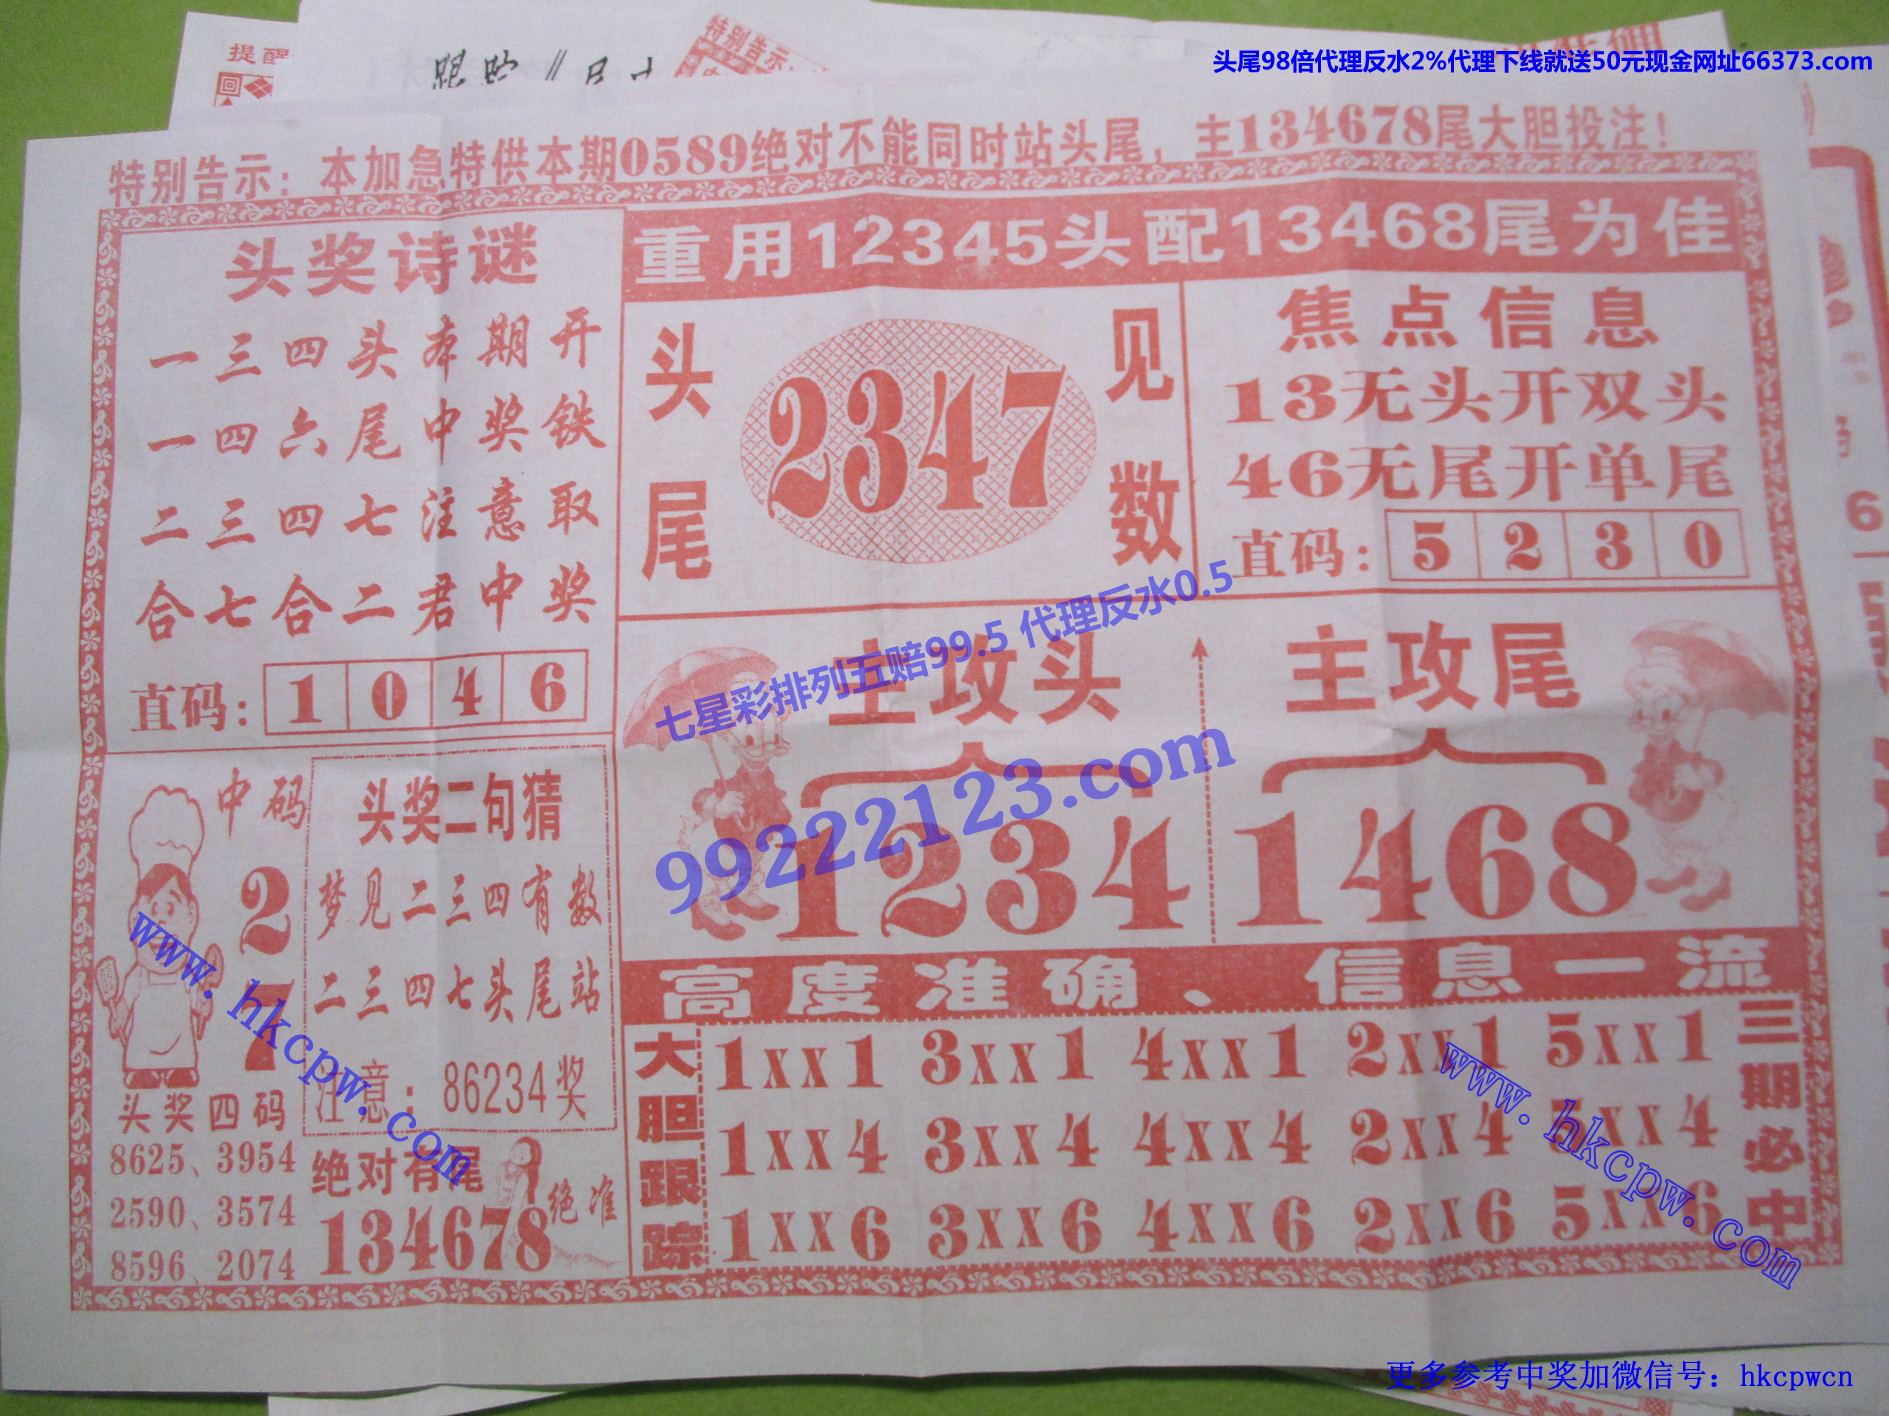 头尾98倍代理反水2%代理下线就送50元现金网址66373.com
提醒
跟踪
特别告示
特别告示：本加急特供本期0589绝对不能同时站头尾，主134678尾大胆投注！
头奖诗谜
一三四头本期开
一四六尾中奖铁
二三四七注意取
合七合二君中奖
直码：1 0 4 6
重用12345头配13468尾为佳
头尾
2347
见数
焦点信息
13无头开双头
46无尾开单尾
直码：5 2 3 0
七星彩排列五赔99.5 代理反水0.5
99222123.com
主攻头
1234
主攻尾
1468
中码
2
7
头奖四码
8625、3954
2590、3574
8596、2074
头奖二句猜
梦见二三四有数
二三四七头尾站
注意：86234奖
绝对有尾
134678
绝准
高度准确、信息一流
大胆跟踪
1XX1 3XX1 4XX1 2XX1 5XX1
1XX4 3XX4 4XX4 2XX4 5XX4
1XX6 3XX6 4XX6 2XX6 5XX6
三期必中
www.hkcpw.com
www.hkcpw.com
更多参考中奖加微信号：hkcpwcn